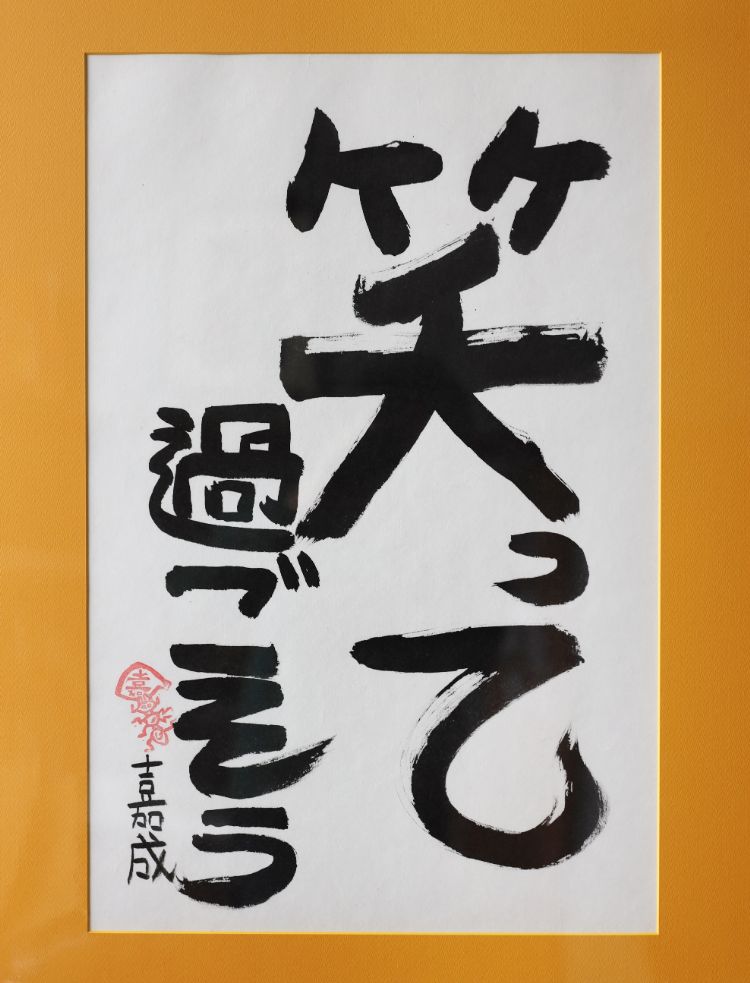 笑って
過ごそう
嘉成